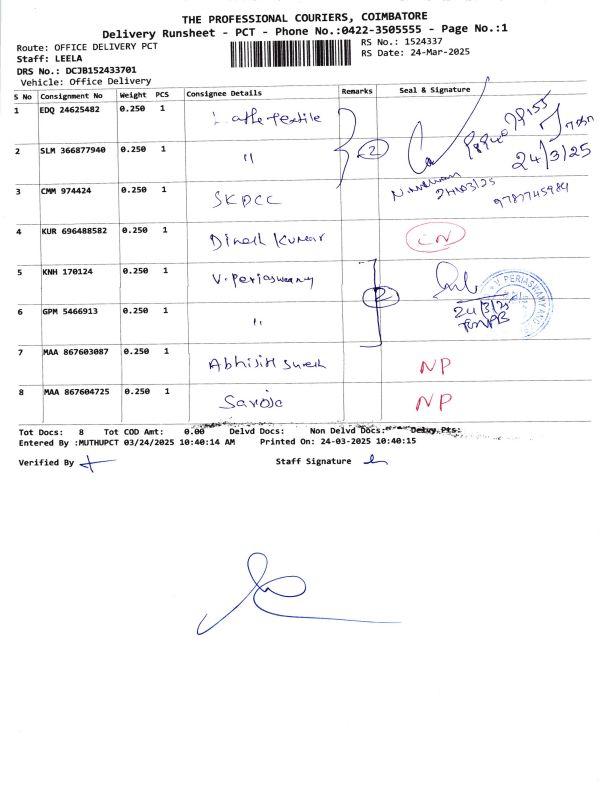 THE PROFESSIONAL COURIERS, COIMBATORE
Delivery Runsheet - PCT - Phone No.:0422-3505555 - Page No.:1
Route: OFFICE DELIVERY PCT
RS No.: 1524337
Staff: LEELA
RS Date: 24-Mar-2025
DRS No.: DCJB152433701
Vehicle: Office Delivery
S No Consignment No Weight PCS Consignee Details Remarks Seal & Signature
1 EDQ 24625482 0.250 1 textile
2 SLM 366877940 0.250 1 "
2
24/3/25
3 CMM 974424 0.250 1 SKDCC
24/03/25
9787745984
4 KUR 696488582 0.250 1 Dinesh Kumar CN
5 KNH 170124 0.250 1 V. Periaswamy
2
V. PERIASWAMY
6 GPM 5466913 0.250 1 "
24/3/25
7 MAA 867603087 0.250 1 Abhijith Suresh NP
8 MAA 867604725 0.250 1 Saroja NP
Tot Docs: 8 Tot COD Amt: 0.00 Delvd Docs: Non Delvd Docs: Delvy.Pts:
Entered By :MUTHUPCT 03/24/2025 10:40:14 AM Printed On: 24-03-2025 10:40:15
Verified By Staff Signature